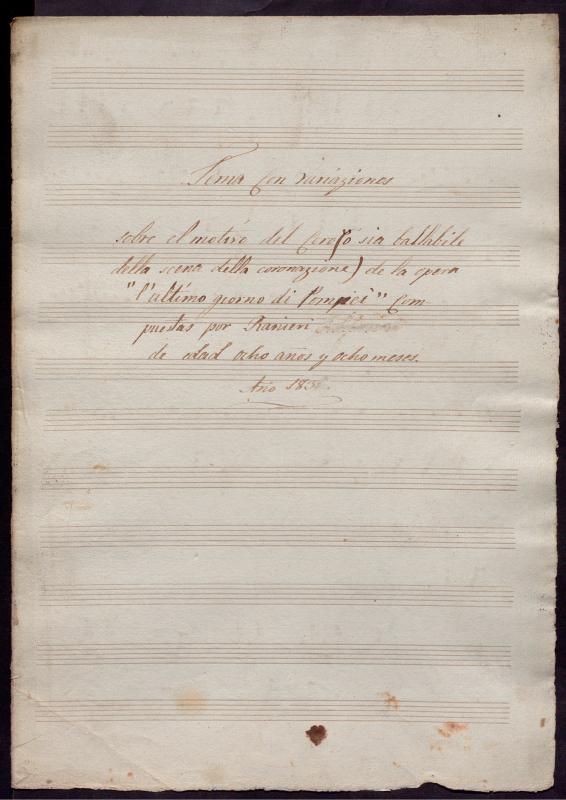 Tema con variaziones
sobre el motivo del Coro (o sia ballabile
della scena della coronazione) de la opera
"l'ultimo giorno di Pompei" Com
puestas por Ranieri
de edad ocho años y ocho meses.
Año 183